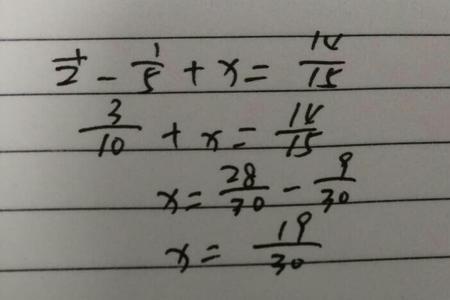 1/2 - 1/5 + x = 14/15
3/10 + x = 14/15
x = 28/30 - 9/30
x = 19/30